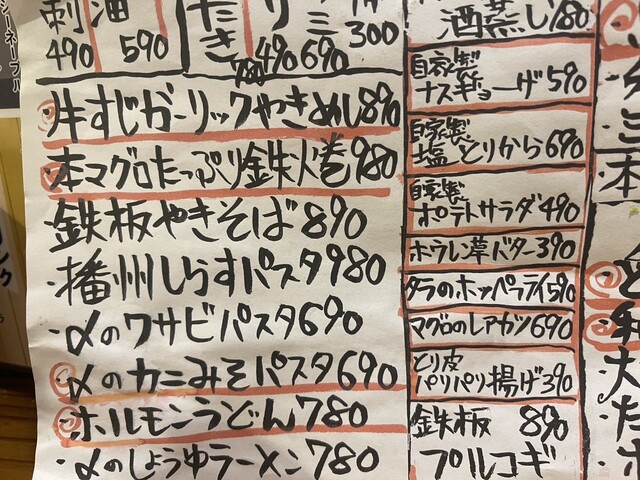 刺 油
490 590
490 690
300
780
・牛すじガーリックやきめし890
・本マグロたっぷり鉄火巻980
・鉄板やきそば890
・播州しらすパスタ980
・〆のワサビパスタ690
・〆のカニみそパスタ690
・ホルモンうどん780
・〆のしょうゆラーメン780
酒蒸し780
自家製
ナスギョーザ590
自家製
塩とりから690
自家製
ポテトサラダ490
ホウレン草バター390
タラのホッペフライ590
マグロのレアカツ690
とり皮
パリパリ揚げ390
鉄板 890
プルコギ